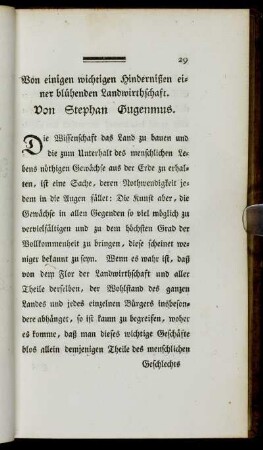 29
Von einigen wichtigen Hindernißen ei-
ner blühenden Landwirthschaft.
Von Stephan Gugenmus.
Die Wissenschaft das Land zu bauen und
die zum Unterhalt des menschlichen Le-
bens nöthigen Gewächse aus der Erde zu erhal-
ten, ist eine Sache, deren Nothwendigkeit je-
dem in die Augen fället: Die Kunst aber, die
Gewächse in allen Gegenden so viel möglich zu
vervielfältigen und zu dem höchsten Grad der
Vollkommenheit zu bringen, diese scheinet we-
niger bekannt zu seyn. Wenn es wahr ist, daß
von dem Flor der Landwirthschaft und aller
Theile derselben, der Wohlstand des ganzen
Landes und jedes einzelnen Bürgers insbeson-
dere abhänget, so ist kaum zu begreifen, woher
es komme, daß man dieses wichtige Geschäfte
blos allein demjenigen Theile des menschlichen
Geschlechts